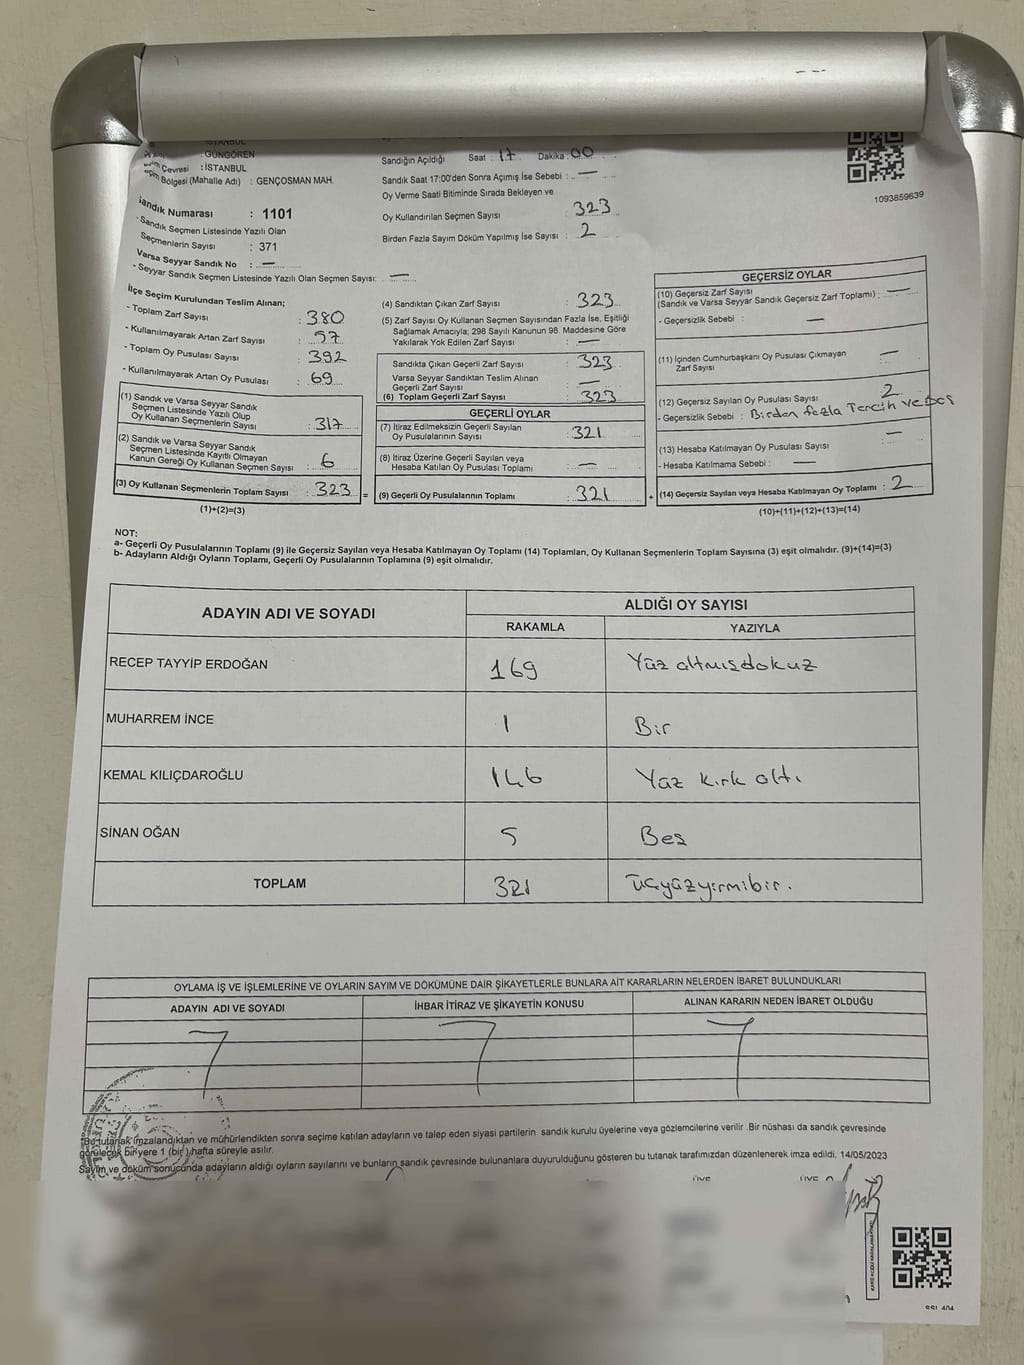 İSTANBUL
: GÜNGÖREN
Çevresi : İSTANBUL
Bölgesi (Mahalle Adı) : GENÇOSMAN MAH.
Sandık Numarası : 1101
- Sandık Seçmen Listesinde Yazılı Olan
Seçmenlerin Sayısı : 371
Varsa Seyyar Sandık No : —
- Seyyar Sandık Seçmen Listesinde Yazılı Olan Seçmen Sayısı: —
Sandığın Açıldığı Saat : 17 Dakika : 00
Sandık Saat 17:00'den Sonra Açımış İse Sebebi : —
Oy Verme Saati Bitiminde Sırada Bekleyen ve
Oy Kullandırılan Seçmen Sayısı : 323
Birden Fazla Sayım Döküm Yapılmış İse Sayısı : 2
1093859639
İlçe Seçim Kurulundan Teslim Alınan;
- Toplam Zarf Sayısı : 380
- Kullanılmayarak Artan Zarf Sayısı : 57
- Toplam Oy Pusulası Sayısı : 392
- Kullanılmayarak Artan Oy Pusulası : 69
(1) Sandık ve Varsa Seyyar Sandık
Seçmen Listesinde Yazılı Olup
Oy Kullanan Seçmenlerin Sayısı : 317
(2) Sandık ve Varsa Seyyar Sandık
Seçmen Listesinde Kayıtlı Olmayan
Kanun Gereği Oy Kullanan Seçmen Sayısı : 6
(3) Oy Kullanan Seçmenlerin Toplam Sayısı : 323 =
(1)+(2)=(3)
(4) Sandıktan Çıkan Zarf Sayısı : 323
(5) Zarf Sayısı Oy Kullanan Seçmen Sayısından Fazla İse, Eşitliği
Sağlamak Amacıyla; 298 Sayılı Kanunun 98. Maddesine Göre
Yakılarak Yok Edilen Zarf Sayısı : —
Sandıkta Çıkan Geçerli Zarf Sayısı : 323
Varsa Seyyar Sandıktan Teslim Alınan
Geçerli Zarf Sayısı : —
(6) Toplam Geçerli Zarf Sayısı : 323
GEÇERLİ OYLAR
(7) İtiraz Edilmeksizin Geçerli Sayılan
Oy Pusulalarının Sayısı : 321
(8) İtiraz Üzerine Geçerli Sayılan veya
Hesaba Katılan Oy Pusulası Toplamı : —
(9) Geçerli Oy Pusulalarının Toplamı : 321 +
GEÇERSİZ OYLAR
(10) Geçersiz Zarf Sayısı
(Sandık ve Varsa Seyyar Sandık Geçersiz Zarf Toplamı) : —
- Geçersizlik Sebebi : —
(11) İçinden Cumhurbaşkanı Oy Pusulası Çıkmayan
Zarf Sayısı —
(12) Geçersiz Sayılan Oy Pusulası Sayısı 2
- Geçersizlik Sebebi : Birden fazla Tercih
(13) Hesaba Katılmayan Oy Pusulası Sayısı —
- Hesaba Katılmama Sebebi : —
(14) Geçersiz Sayılan veya Hesaba Katılmayan Oy Toplamı : 2
(10)+(11)+(12)+(13)=(14)
NOT:
a- Geçerli Oy Pusulalarının Toplamı (9) ile Geçersiz Sayılan veya Hesaba Katılmayan Oy Toplamı (14) Toplamları, Oy Kullanan Seçmenlerin Toplam Sayısına (3) eşit olmalıdır. (9)+(14)=(3)
b- Adayların Aldığı Oyların Toplamı, Geçerli Oy Pusulalarının Toplamına (9) eşit olmalıdır.
ADAYIN ADI VE SOYADI ALDIĞI OY SAYISI
RAKAMLA YAZIYLA
RECEP TAYYİP ERDOĞAN 169 Yüz altmışdokuz
MUHARREM İNCE 1 Bir
KEMAL KILIÇDAROĞLU 146 Yüz kırk altı
SİNAN OĞAN 5 Beş
TOPLAM 321 Üçyüzyirmibir.
OYLAMA İŞ VE İŞLEMLERİNE VE OYLARIN SAYIM VE DÖKÜMÜNE DAİR ŞİKAYETLERLE BUNLARA AİT KARARLARIN NELERDEN İBARET BULUNDUKLARI
ADAYIN ADI VE SOYADI İHBAR İTİRAZ VE ŞİKAYETİN KONUSU ALINAN KARARIN NEDEN İBARET OLDUĞU
Bu tutanak imzalandıktan ve mühürlendikten sonra seçime katılan adayların ve talep eden siyasi partilerin sandık kurulu üyelerine veya gözlemcilerine verilir .Bir nüshası da sandık çevresinde
görülecek bir yere 1 (bir) hafta süreyle asılır.
Sayım ve döküm sonucunda adayların aldığı oyların sayılarını ve bunların sandık çevresinde bulunanlara duyurulduğunu gösteren bu tutanak tarafımızdan düzenlenerek imza edildi. 14/05/2023
ÜYE ÜYE